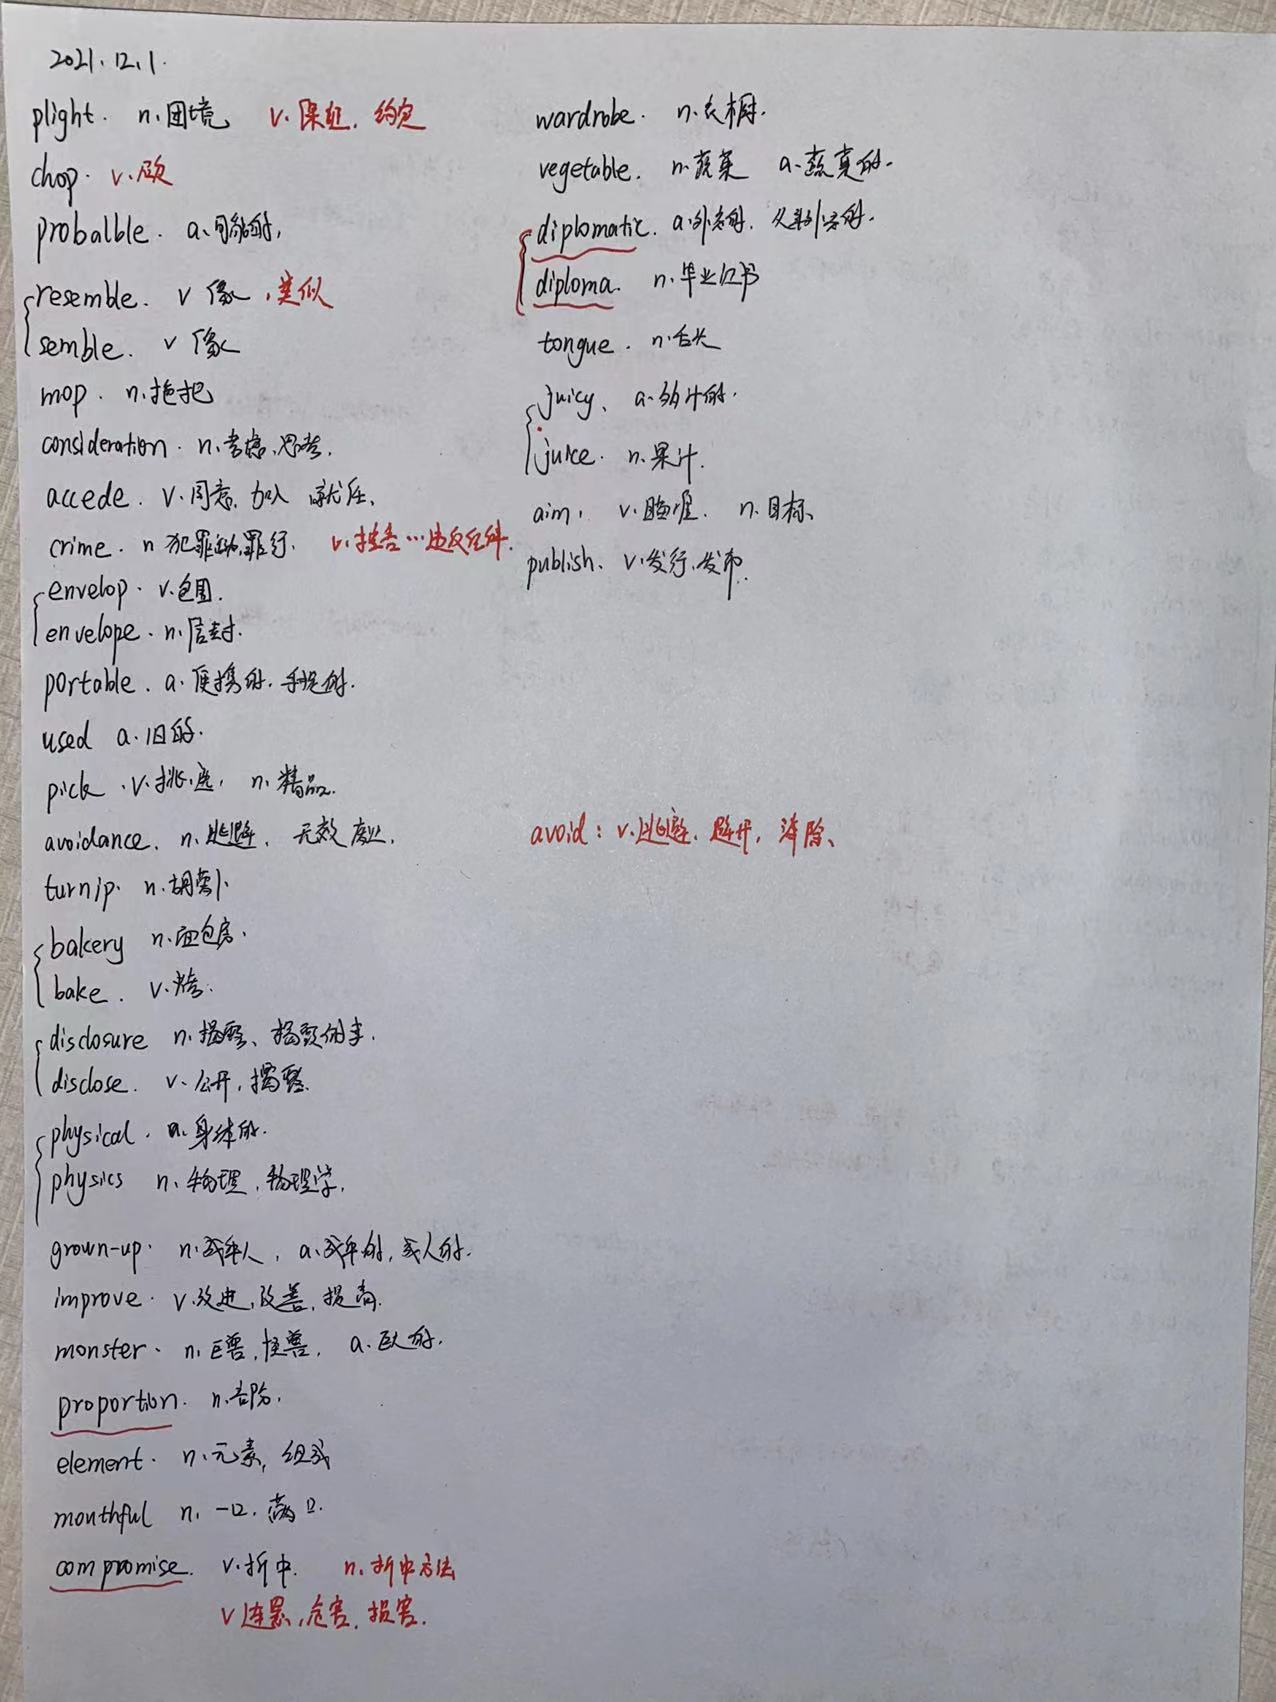 2021.12.1.
plight. n.困境 v.保证, 约定
chop. v.砍
probalble. a.可能的,
resemble. v 像, 类似
semble. v 像
mop. n.拖把
consideration. n.考虑,思考.
accede. v.同意, 加入 就任.
crime. n 犯罪 罪行. v.控告…违反纪律.
envelop. v.包围.
envelope. n.信封.
portable. a.便携的.手提的.
used a.旧的.
pick. v.挑选, n.精品.
avoidance. n.逃避, 无效 废止.
turnip. n.胡萝卜
bakery n.面包房.
bake. v.烤.
disclosure n.揭露、揭发
disclose. v.公开,揭露.
physical. a.身体的.
physics n.物理,物理学.
grown-up. n.成年人, a.成年的,成人的.
improve. v.改进,改善,提高.
monster. n.巨兽,怪兽, a.巨大的.
proportion. n.部分.
element. n.元素, 组成
mouthful n.一口.满口.
compromise. v.折中. n.折中方法
v连累,危害,损害.
wardrobe. n.衣橱.
vegetable. n.蔬菜 a.蔬菜的.
diplomatic. a.外交的. 从事外交的.
diploma. n.毕业证书
tongue. n.舌头
juicy、 a.多汁的.
juice. n.果汁.
aim. v.瞄准. n.目标、
publish、 v.发行、发布.
avoid: v.逃避. 避开, 消除、